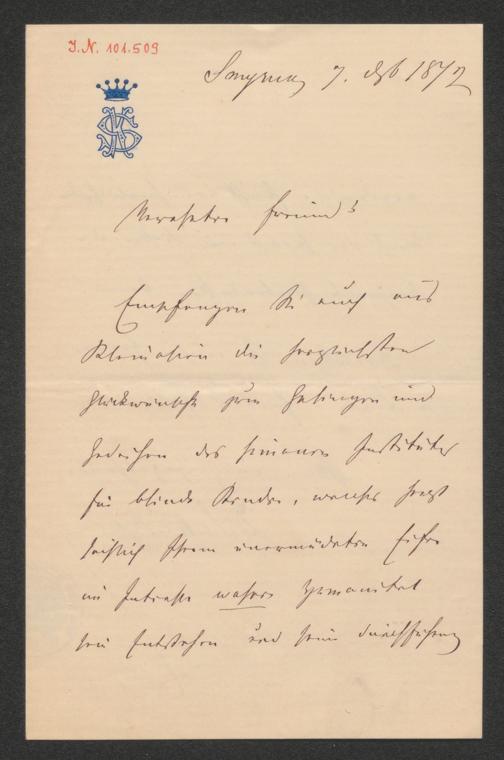 I.N. 101.509
Smyrna 7. 1872
Verehrter Freund!
Empfangen Sie auch aus
Kleinasien die herzlichsten
Glückwünsche zum Gelingen und
Gedeihen des Institutes
für blinde Kinder, welches
Ihrem unermüdeten Eifer
im Interesse wahrer Humanität
sein Entstehen und seine Durchführung